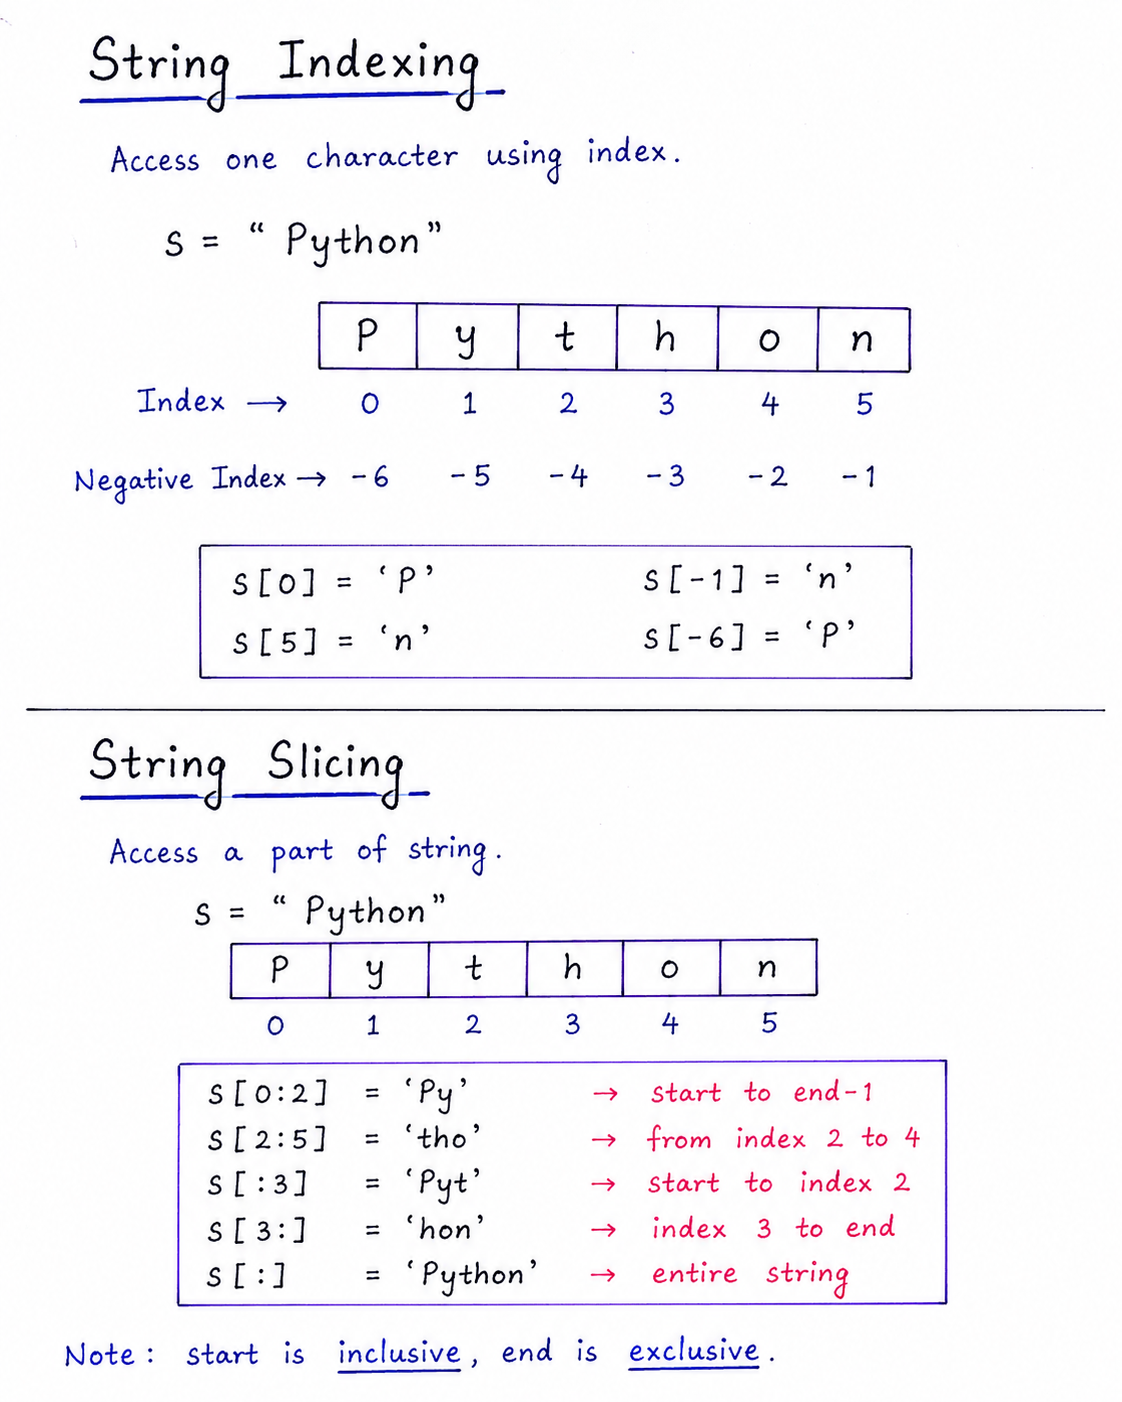 String Indexing
Access one character using index.
s = “ Python”
P y t h o n
Index → 0 1 2 3 4 5
Negative Index → -6 -5 -4 -3 -2 -1
s[0] = ‘P’ s[-1] = ‘n’
s[5] = ‘n’ s[-6] = ‘P’
String Slicing
Access a part of string.
s = “ Python”
P y t h o n
0 1 2 3 4 5
s[0:2] = ‘Py’ → start to end-1
s[2:5] = ‘tho’ → from index 2 to 4
s[:3] = ‘Pyt’ → start to index 2
s[3:] = ‘hon’ → index 3 to end
s[:] = ‘Python’ → entire string
Note: start is inclusive, end is exclusive.